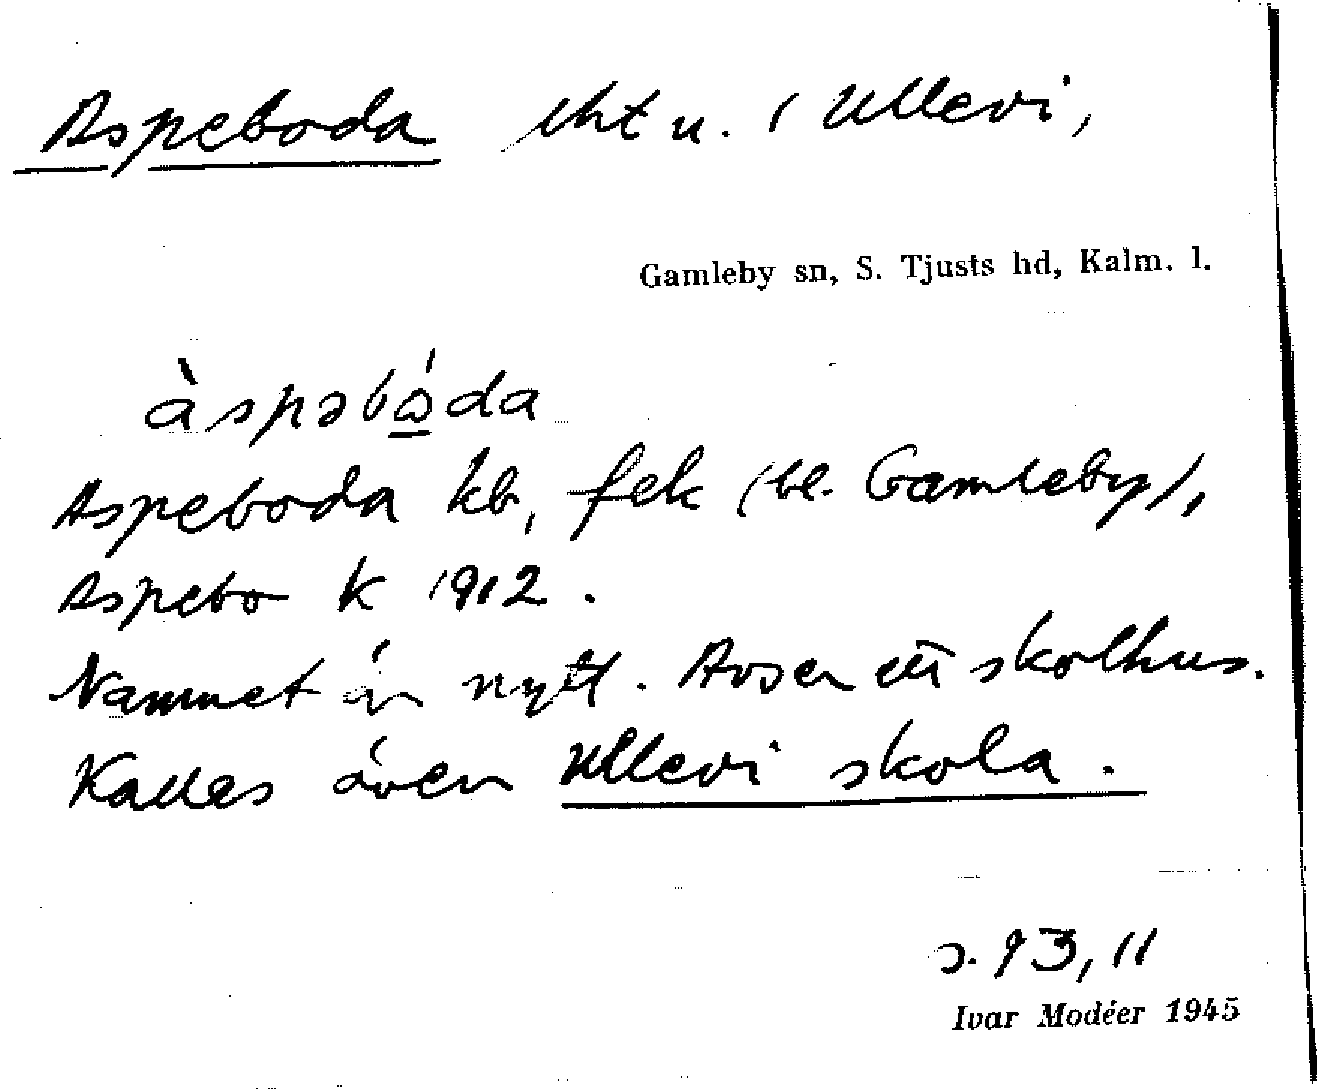 Aspeboda lht u. i Ullevi,
Gamleby sn, S. Tjusts hd, Kalm. l.
àspəbó̲da
Aspeboda kb, fek (bl. Gamleby),
Aspebo k 1912.
Namnet är nytt. Avser ett skolhus.
Kallas även Ullevi skola.
s. 93, 11
Ivar Modéer 1945